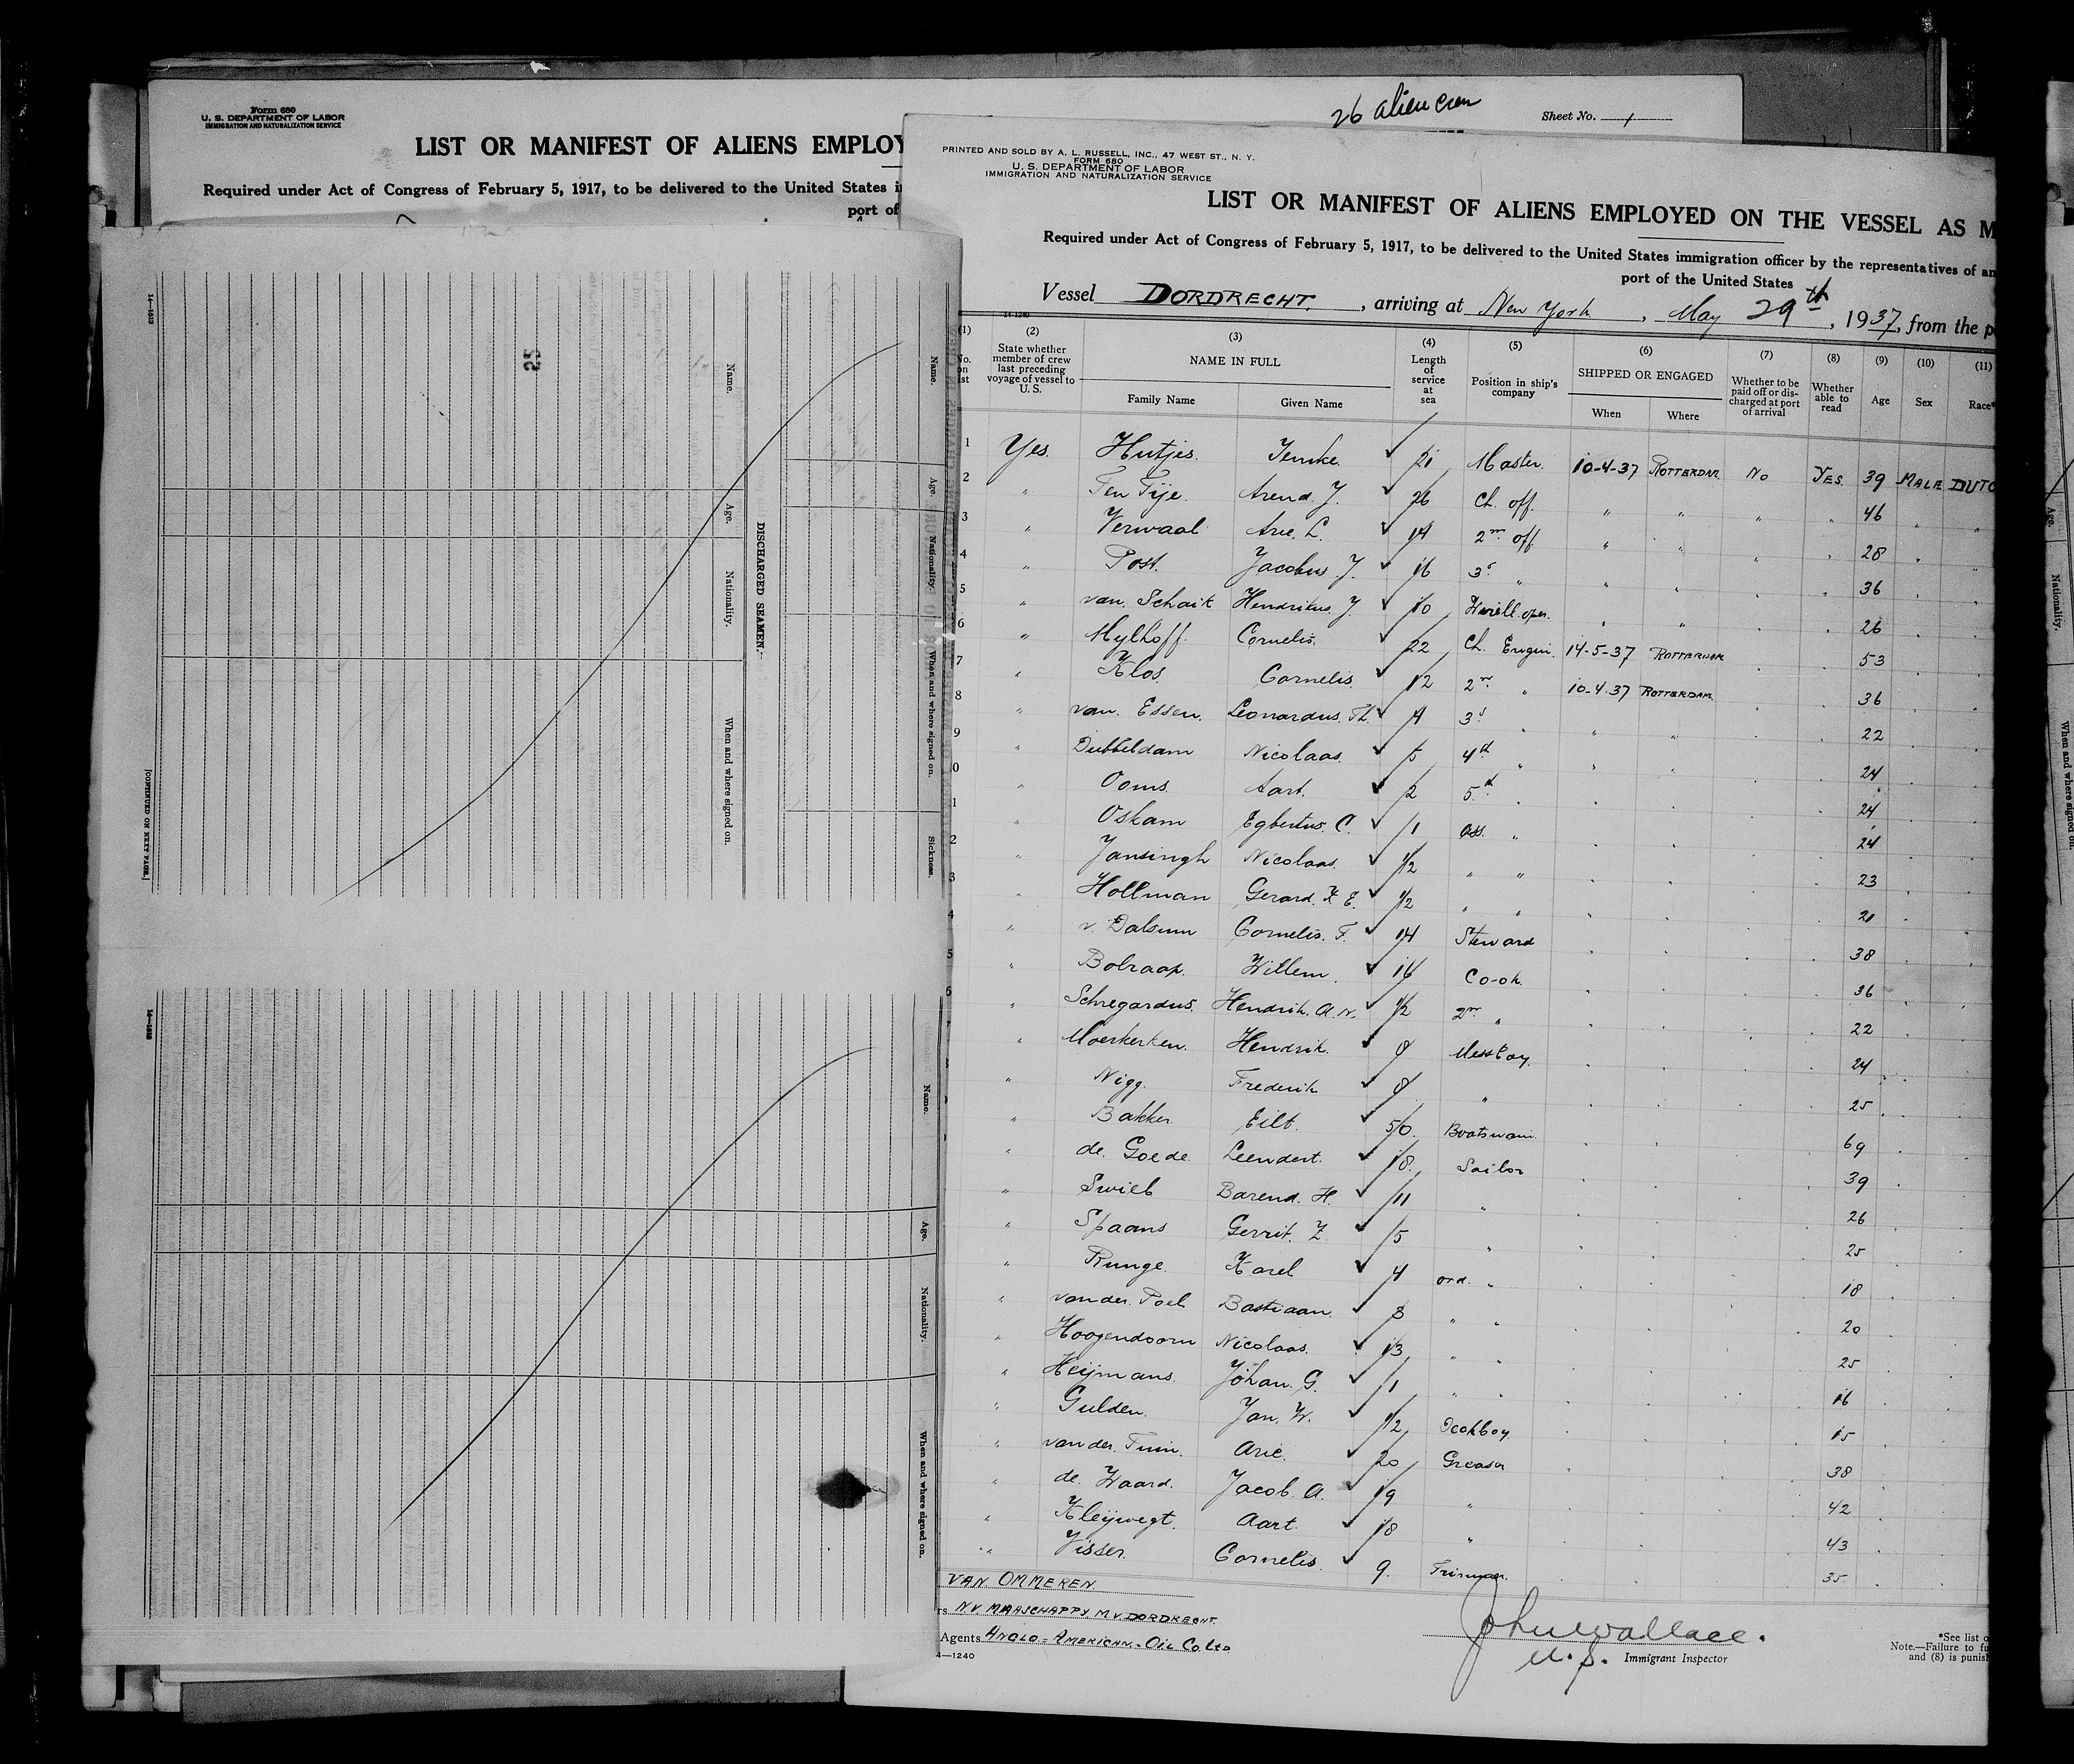 Form 680
U. S. DEPARTMENT OF LABOR
IMMIGRATION AND NATURALIZATION SERVICE
LIST OR MANIFEST OF ALIENS EMPLOY
Required under Act of Congress of February 5, 1917, to be delivered to the United States i
port of
26 alien crew
Sheet No. 1
14—1613
25
Name.
Age.
Nationality.
When and where signed on.
DISCHARGED SEAMEN.
Name.
Age.
Nationality.
When and where signed on.
Sickness.
[CONTINUED ON NEXT PAGE.]
Name.
Age.
Nationality.
When and where signed on.
PRINTED AND SOLD BY A. L. RUSSELL, INC., 47 WEST ST., N. Y.
FORM 680
U. S. DEPARTMENT OF LABOR
IMMIGRATION AND NATURALIZATION SERVICE
LIST OR MANIFEST OF ALIENS EMPLOYED ON THE VESSEL AS M
Required under Act of Congress of February 5, 1917, to be delivered to the United States immigration officer by the representatives of an
port of the United States
Vessel DORDRECHT. , arriving at New York , May 29th , 1937, from the p
14-1240
(1) (2) (3) (4) (5) (6) (7) (8) (9) (10) (11)
No. on ist
State whether member of crew last preceding voyage of vessel to U. S.
NAME IN FULL
Family Name Given Name
Length of service at sea
Position in ship's company
SHIPPED OR ENGAGED
When Where
Whether to be paid off or discharged at port of arrival
Whether able to read
Age
Sex
Race*
1 Yes. Hutjes. Jemke. ✓ 21 Master. 10-4-37 ROTTERDAM No YES. 39 MALE DUTC
2 " Ten Tije. Arend. J. ✓ 26 Ch. off. " " " " 46 " "
3 " Verwaal Arie. L. ✓ 14 2nd off " " " " 28 " "
4 " Post. Jacobus J. ✓ 16 3d " " " " " 36 " "
5 " van. Schaik Hendrikus. J. ✓ 10 " " " " 26 " "
6 " Mylhoff. Cornelis. ✓ 22 Ch. Engin. 14-5-37 ROTTERDAM " " 53 " "
7 " Klos. Cornelis. ✓ 12 2nd " 10-4-37 ROTTERDAM. " " 36 " "
8 " van. Essen. Leonardus. Th. ✓ 4 3d " " " " " 22 " "
9 " Dubbeldam Nicolaas. ✓ 4th " " " " " 24 " "
0 " Ooms. Aart. ✓ 2 5th " " " " " 24 " "
1 " Oskam Egbertus. C. ✓ 1 ass. " " " " " 24 " "
2 " Jansingh Nicolaas. ✓ 1/2 " " " " " " 23 " "
3 " Hollman Gerard. K. E. ✓ 1/2 " " " " " " 21 " "
4 " v. Dalsum Cornelis. F. ✓ 14 Steward " " " " 38 " "
5 " Bolraap. Willem. ✓ 16 Co-ok. " " " " 36 " "
6 " Schregardus. Hendrik. A. N. ✓ 1/2 2nd " " " " " 22 " "
" Moerkerken. Hendrik. ✓ 0 Messboy. " " " " 24 " "
" Nigg. Frederik ✓ 0 " " " " " 25 " "
" Bakker. Eilt. ✓ 50. Boatswain. " " " " 69 " "
" de. Goede. Leendert. ✓ 18. Sailor " " " " 39 " "
" Swieb Barend. H. ✓ 11 " " " " " 26 " "
" Spaans Gerrit. Z. ✓ 5 " " " " " 25 " "
" Runge. Karel ✓ 4 ord. " " " " " 18 " "
" van der. Poel Bastiaan. ✓ 3 " " " " " " 20 " "
" Hoogendoorn Nicolaas. ✓ 13 " " " " " " 25 " "
" Heijmans. Johan. G. ✓ 1 " " " " " " 16 " "
" Gulden. Jan. W. ✓ 1/2 Deckboy. " " " " 15 " "
" van der. Tuin. Arie. ✓ 20 Greaser " " " " 38 " "
" de. Waard. Jacob. A. ✓ 19 " " " " " 42 " "
" Kleijwegt. Aart. ✓ 18 " " " " " 43 " "
" Visser. Cornelis. ✓ 9. Trimmer. " " " " 35 " "
VAN. OMMEREN.
rs NV MAASCHAPPY. M.V. DORDRECHT.
Agents ANGLO-AMERICAN-OIL Co Ltd
4—1240
John Wallace.
U. S. Immigrant Inspector
*See list o
Note.—Failure to fu
and (8) is punish